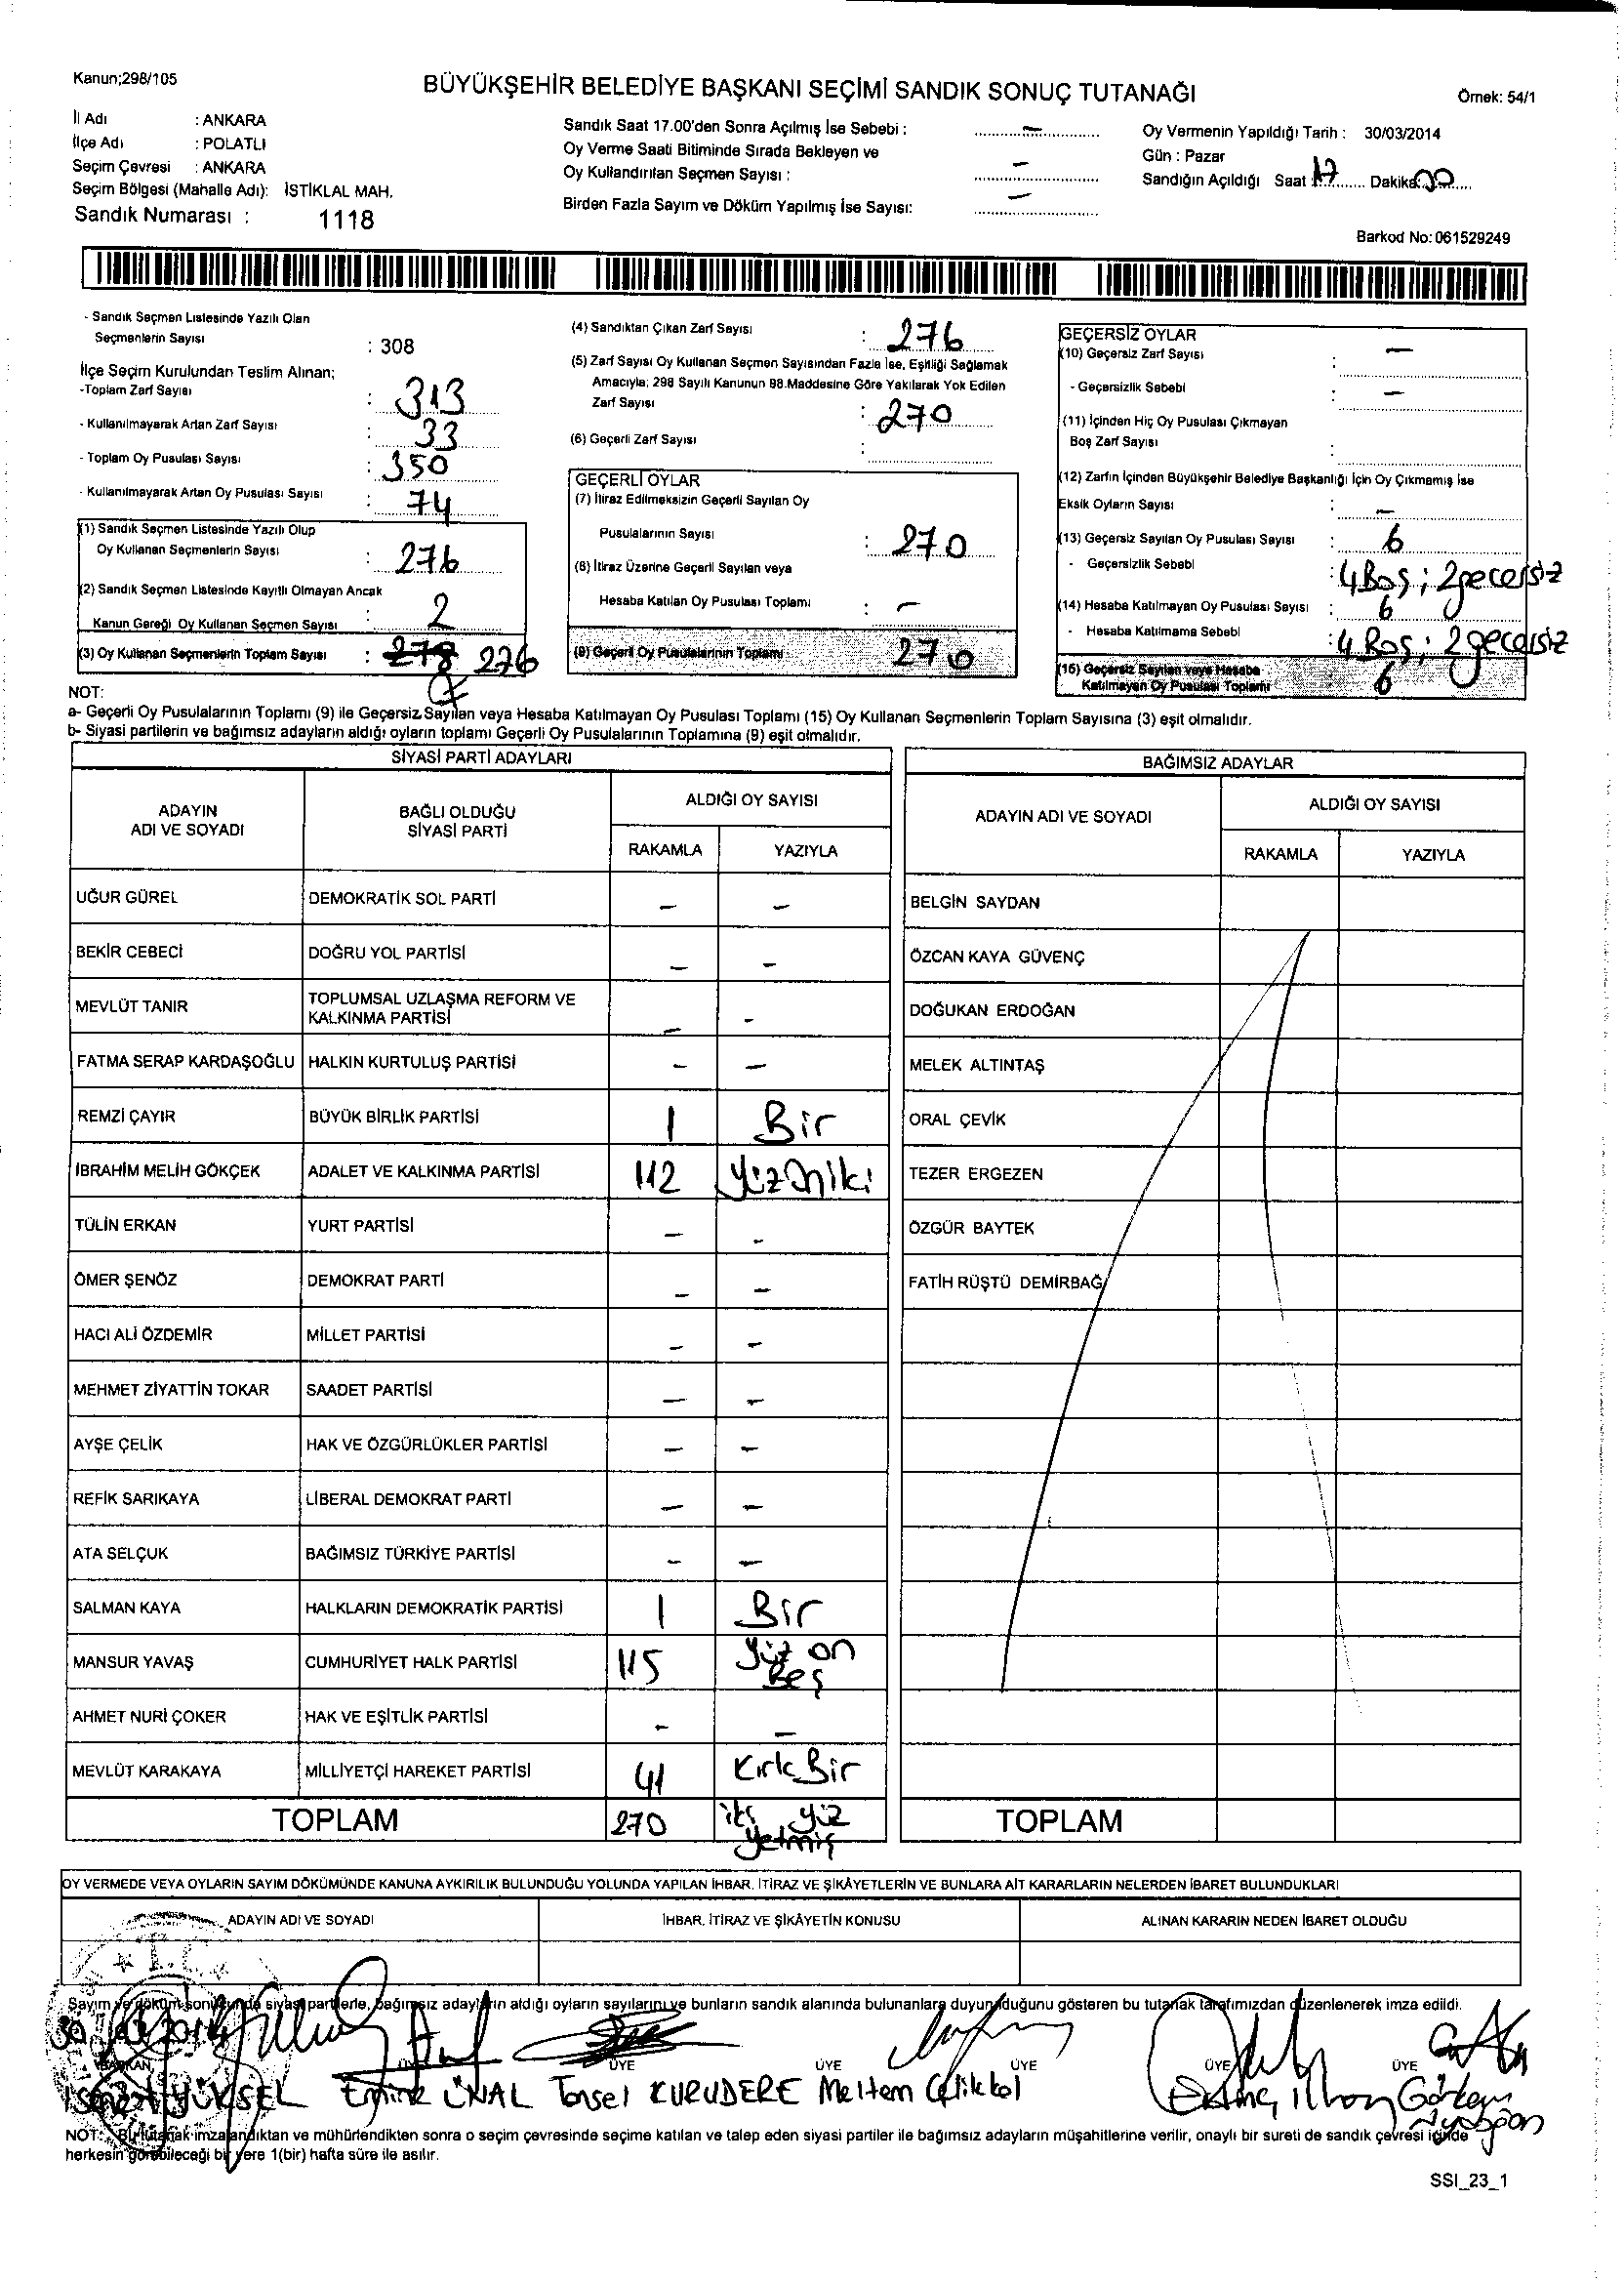 Kanun;298/105
BÜYÜKŞEHİR BELEDİYE BAŞKANI SEÇİMİ SANDIK SONUÇ TUTANAĞI
Örnek: 54/1
İl Adı : ANKARA
İlçe Adı : POLATLI
Seçim Çevresi : ANKARA
Seçim Bölgesi (Mahalle Adı): İSTİKLAL MAH.
Sandık Numarası : 1118
Sandık Saat 17.00'den Sonra Açılmış İse Sebebi : –
Oy Verme Saati Bitiminde Sırada Bekleyen ve
Oy Kullandırılan Seçmen Sayısı : –
Birden Fazla Sayım ve Döküm Yapılmış İse Sayısı: –
Oy Vermenin Yapıldığı Tarih : 30/03/2014
Gün : Pazar
Sandığın Açıldığı Saat 17 Dakika 00
Barkod No: 061529249
- Sandık Seçmen Listesinde Yazılı Olan
Seçmenlerin Sayısı : 308
İlçe Seçim Kurulundan Teslim Alınan;
-Toplam Zarf Sayısı : 313
- Kullanılmayarak Artan Zarf Sayısı : 33
- Toplam Oy Pusulası Sayısı : 350
- Kullanılmayarak Artan Oy Pusulası Sayısı : 74
(1) Sandık Seçmen Listesinde Yazılı Olup
Oy Kullanan Seçmenlerin Sayısı : 276
(2) Sandık Seçmen Listesinde Kayıtlı Olmayan Ancak
Kanun Gereği Oy Kullanan Seçmen Sayısı : 2
(3) Oy Kullanan Seçmenlerin Toplam Sayısı : 278 276
(4) Sandıktan Çıkan Zarf Sayısı : 276
(5) Zarf Sayısı Oy Kullanan Seçmen Sayısından Fazla İse, Eşitliği Sağlamak
Amacıyla; 298 Sayılı Kanunun 98.Maddesine Göre Yakılarak Yok Edilen
Zarf Sayısı : 270
(6) Geçerli Zarf Sayısı :
GEÇERLİ OYLAR
(7) İtiraz Edilmeksizin Geçerli Sayılan Oy
Pusulalarının Sayısı : 270
(8) İtiraz Üzerine Geçerli Sayılan veya
Hesaba Katılan Oy Pusulası Toplamı : –
(9) Geçerli Oy Pusulalarının Toplamı : 270
GEÇERSİZ OYLAR
(10) Geçersiz Zarf Sayısı : –
- Geçersizlik Sebebi : –
(11) İçinden Hiç Oy Pusulası Çıkmayan
Boş Zarf Sayısı :
(12) Zarfın İçinden Büyükşehir Belediye Başkanlığı İçin Oy Çıkmamış ise
Eksik Oyların Sayısı : –
(13) Geçersiz Sayılan Oy Pusulası Sayısı : 6
- Geçersizlik Sebebi : 4 Boş; 2 gecersiz
(14) Hesaba Katılmayan Oy Pusulası Sayısı : 6
- Hesaba Katılmama Sebebi : 4 Boş; 2 gecersiz
(15) Geçersiz Sayılan veya Hesaba
Katılmayan Oy Pusulası Toplamı 6
NOT:
a- Geçerli Oy Pusulalarının Toplamı (9) ile Geçersiz Sayılan veya Hesaba Katılmayan Oy Pusulası Toplamı (15) Oy Kullanan Seçmenlerin Toplam Sayısına (3) eşit olmalıdır.
b- Siyasi partilerin ve bağımsız adayların aldığı oyların toplamı Geçerli Oy Pusulalarının Toplamına (9) eşit olmalıdır.
SİYASİ PARTİ ADAYLARI
ADAYIN ADI VE SOYADI BAĞLI OLDUĞU SİYASİ PARTİ ALDIĞI OY SAYISI
RAKAMLA YAZIYLA
UĞUR GÜREL DEMOKRATİK SOL PARTİ – –
BEKİR CEBECİ DOĞRU YOL PARTİSİ – –
MEVLÜT TANIR TOPLUMSAL UZLAŞMA REFORM VE KALKINMA PARTİSİ – –
FATMA SERAP KARDAŞOĞLU HALKIN KURTULUŞ PARTİSİ – –
REMZİ ÇAYIR BÜYÜK BİRLİK PARTİSİ 1 Bir
İBRAHİM MELİH GÖKÇEK ADALET VE KALKINMA PARTİSİ 112 Yüzoniki
TÜLİN ERKAN YURT PARTİSİ – –
ÖMER ŞENÖZ DEMOKRAT PARTİ – –
HACI ALİ ÖZDEMİR MİLLET PARTİSİ – –
MEHMET ZİYATTİN TOKAR SAADET PARTİSİ – –
AYŞE ÇELİK HAK VE ÖZGÜRLÜKLER PARTİSİ – –
REFİK SARIKAYA LİBERAL DEMOKRAT PARTİ – –
ATA SELÇUK BAĞIMSIZ TÜRKİYE PARTİSİ – –
SALMAN KAYA HALKLARIN DEMOKRATİK PARTİSİ 1 Bir
MANSUR YAVAŞ CUMHURİYET HALK PARTİSİ 115 Yüz on Beş
AHMET NURİ ÇOKER HAK VE EŞİTLİK PARTİSİ – –
MEVLÜT KARAKAYA MİLLİYETÇİ HAREKET PARTİSİ 41 Kırk Bir
TOPLAM 270 iki yüz yetmiş
BAĞIMSIZ ADAYLAR
ADAYIN ADI VE SOYADI ALDIĞI OY SAYISI
RAKAMLA YAZIYLA
BELGİN SAYDAN
ÖZCAN KAYA GÜVENÇ
DOĞUKAN ERDOĞAN
MELEK ALTINTAŞ
ORAL ÇEVİK
TEZER ERGEZEN
ÖZGÜR BAYTEK
FATİH RÜŞTÜ DEMİRBAĞ
TOPLAM
OY VERMEDE VEYA OYLARIN SAYIM DÖKÜMÜNDE KANUNA AYKIRILIK BULUNDUĞU YOLUNDA YAPILAN İHBAR, İTİRAZ VE ŞİKÂYETLERİN VE BUNLARA AİT KARARLARIN NELERDEN İBARET BULUNDUKLARI
ADAYIN ADI VE SOYADI İHBAR, İTİRAZ VE ŞİKÂYETİN KONUSU ALINAN KARARIN NEDEN İBARET OLDUĞU
Sayım ve döküm sonucunda siyasi partilerle, bağımsız adayların aldığı oyların sayılarını ve bunların sandık alanında bulunanlara duyurulduğunu gösteren bu tutanak tarafımızdan düzenlenerek imza edildi.
BAŞKAN ÜYE ÜYE ÜYE ÜYE ÜYE ÜYE
YÜKSEL Emine ÜNAL KURUDERE Meltem Çelikkol Görkem
NOT: Bu tutanak imzalandıktan ve mühürlendikten sonra o seçim çevresinde seçime katılan ve talep eden siyasi partiler ile bağımsız adayların müşahitlerine verilir, onaylı bir sureti de sandık çevresi içinde
herkesin görebileceği bir yere 1(bir) hafta süre ile asılır.
SSI_23_1